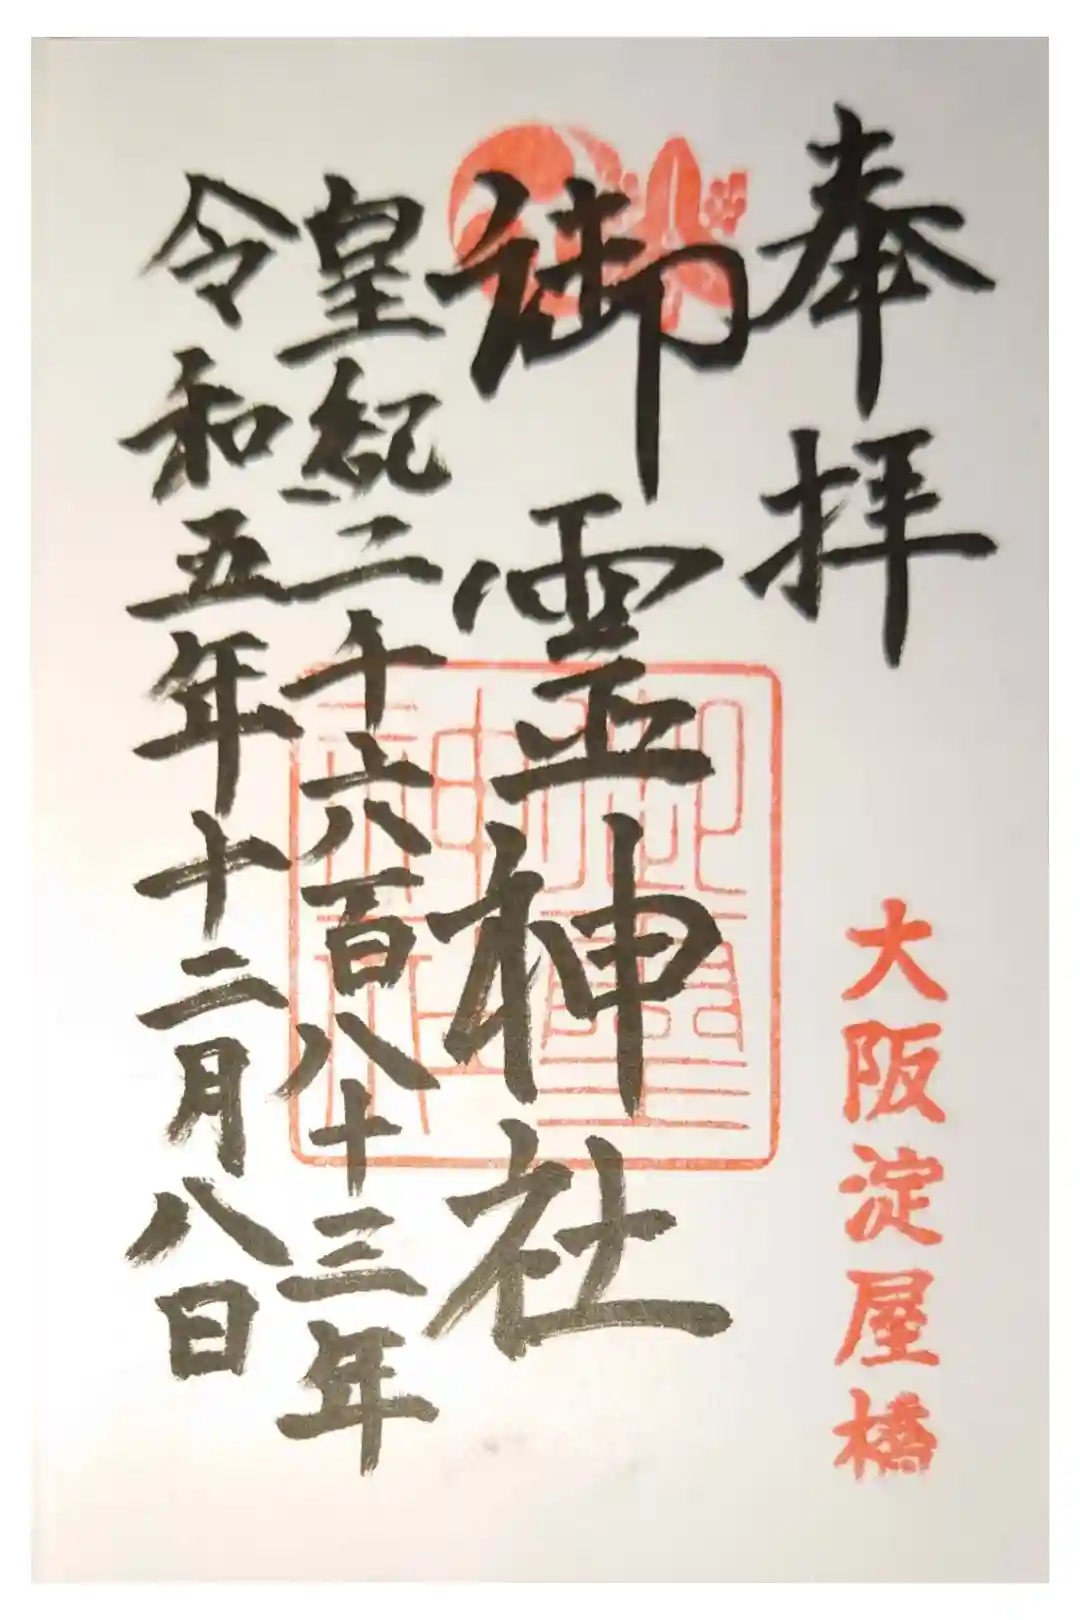 奉拝
大阪淀屋橋
御霊神社
御霊神社
皇紀二千六百八十三年
令和五年十二月八日